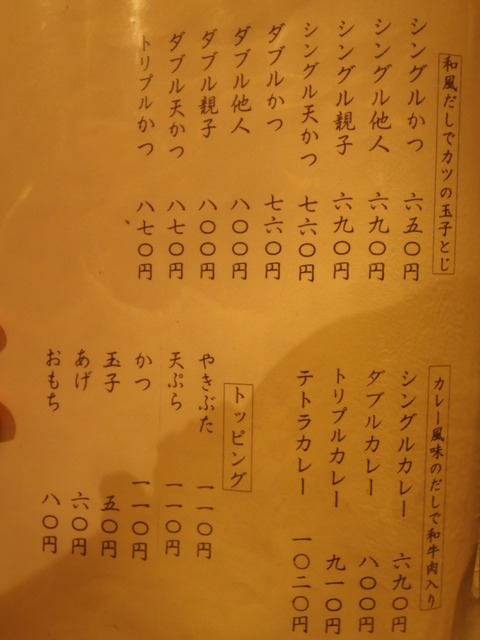 和風だしでカツの玉子とじ
シングルかつ 六五〇円
シングル他人 六九〇円
シングル親子 六九〇円
シングル天かつ 七六〇円
ダブルかつ 七六〇円
ダブル他人 八〇〇円
ダブル親子 八〇〇円
ダブル天かつ 八七〇円
トリプルかつ 八七〇円
カレー風味のだしで和牛肉入り
シングルカレー 六九〇円
ダブルカレー 八〇〇円
トリプルカレー 九一〇円
テトラカレー 一〇二〇円
トッピング
やきぶた 一一〇円
天ぷら 一一〇円
かつ 一一〇円
玉子 五〇円
あげ 六〇円
おもち 八〇円